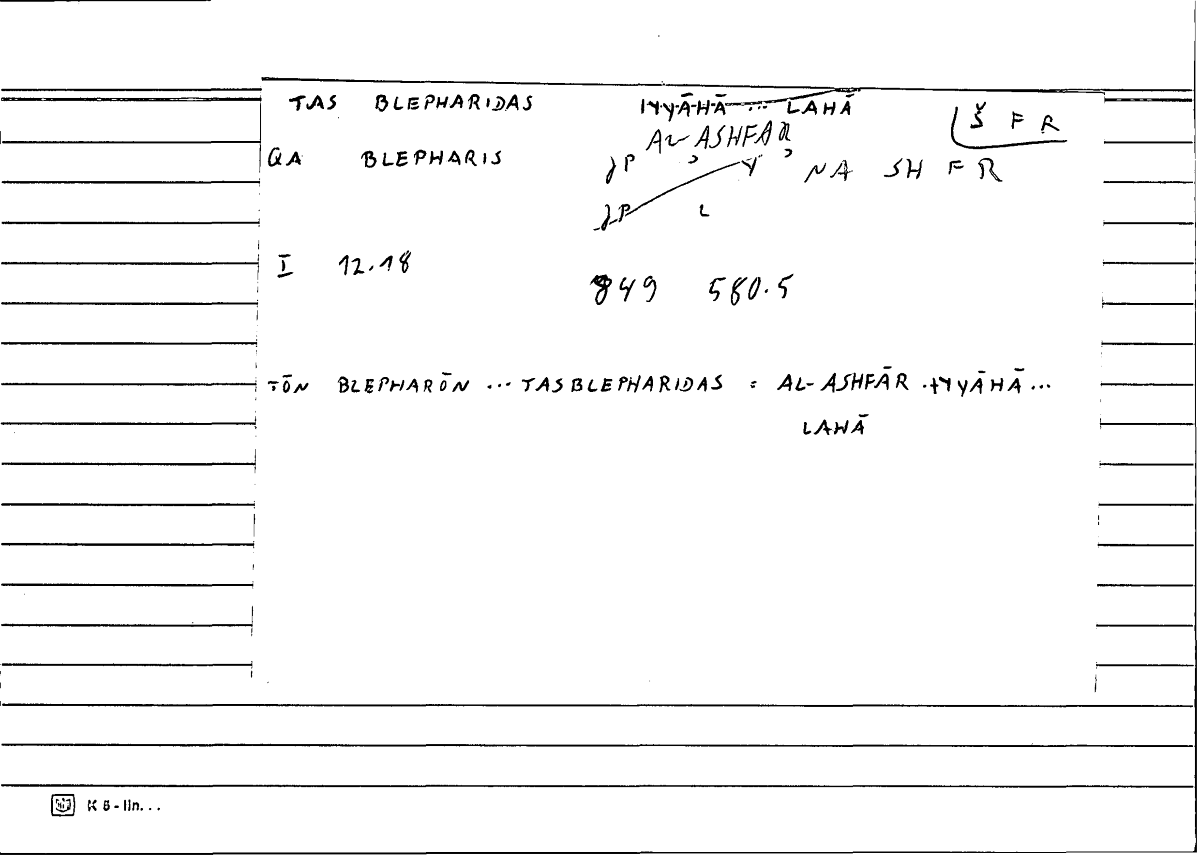 TAS BLEPHARIDAS IYYĀHĀ ... LAHĀ Š F R
AL-ASHFAR
QA BLEPHARIS JP ' Y ' NA SH F R
JP L
I 12.18
849 580.5
TŌN BLEPHARŌN ... TAS BLEPHARIDAS = AL-ASHFĀR . IYYĀHĀ ...
LAHĀ
K 8 - lin...